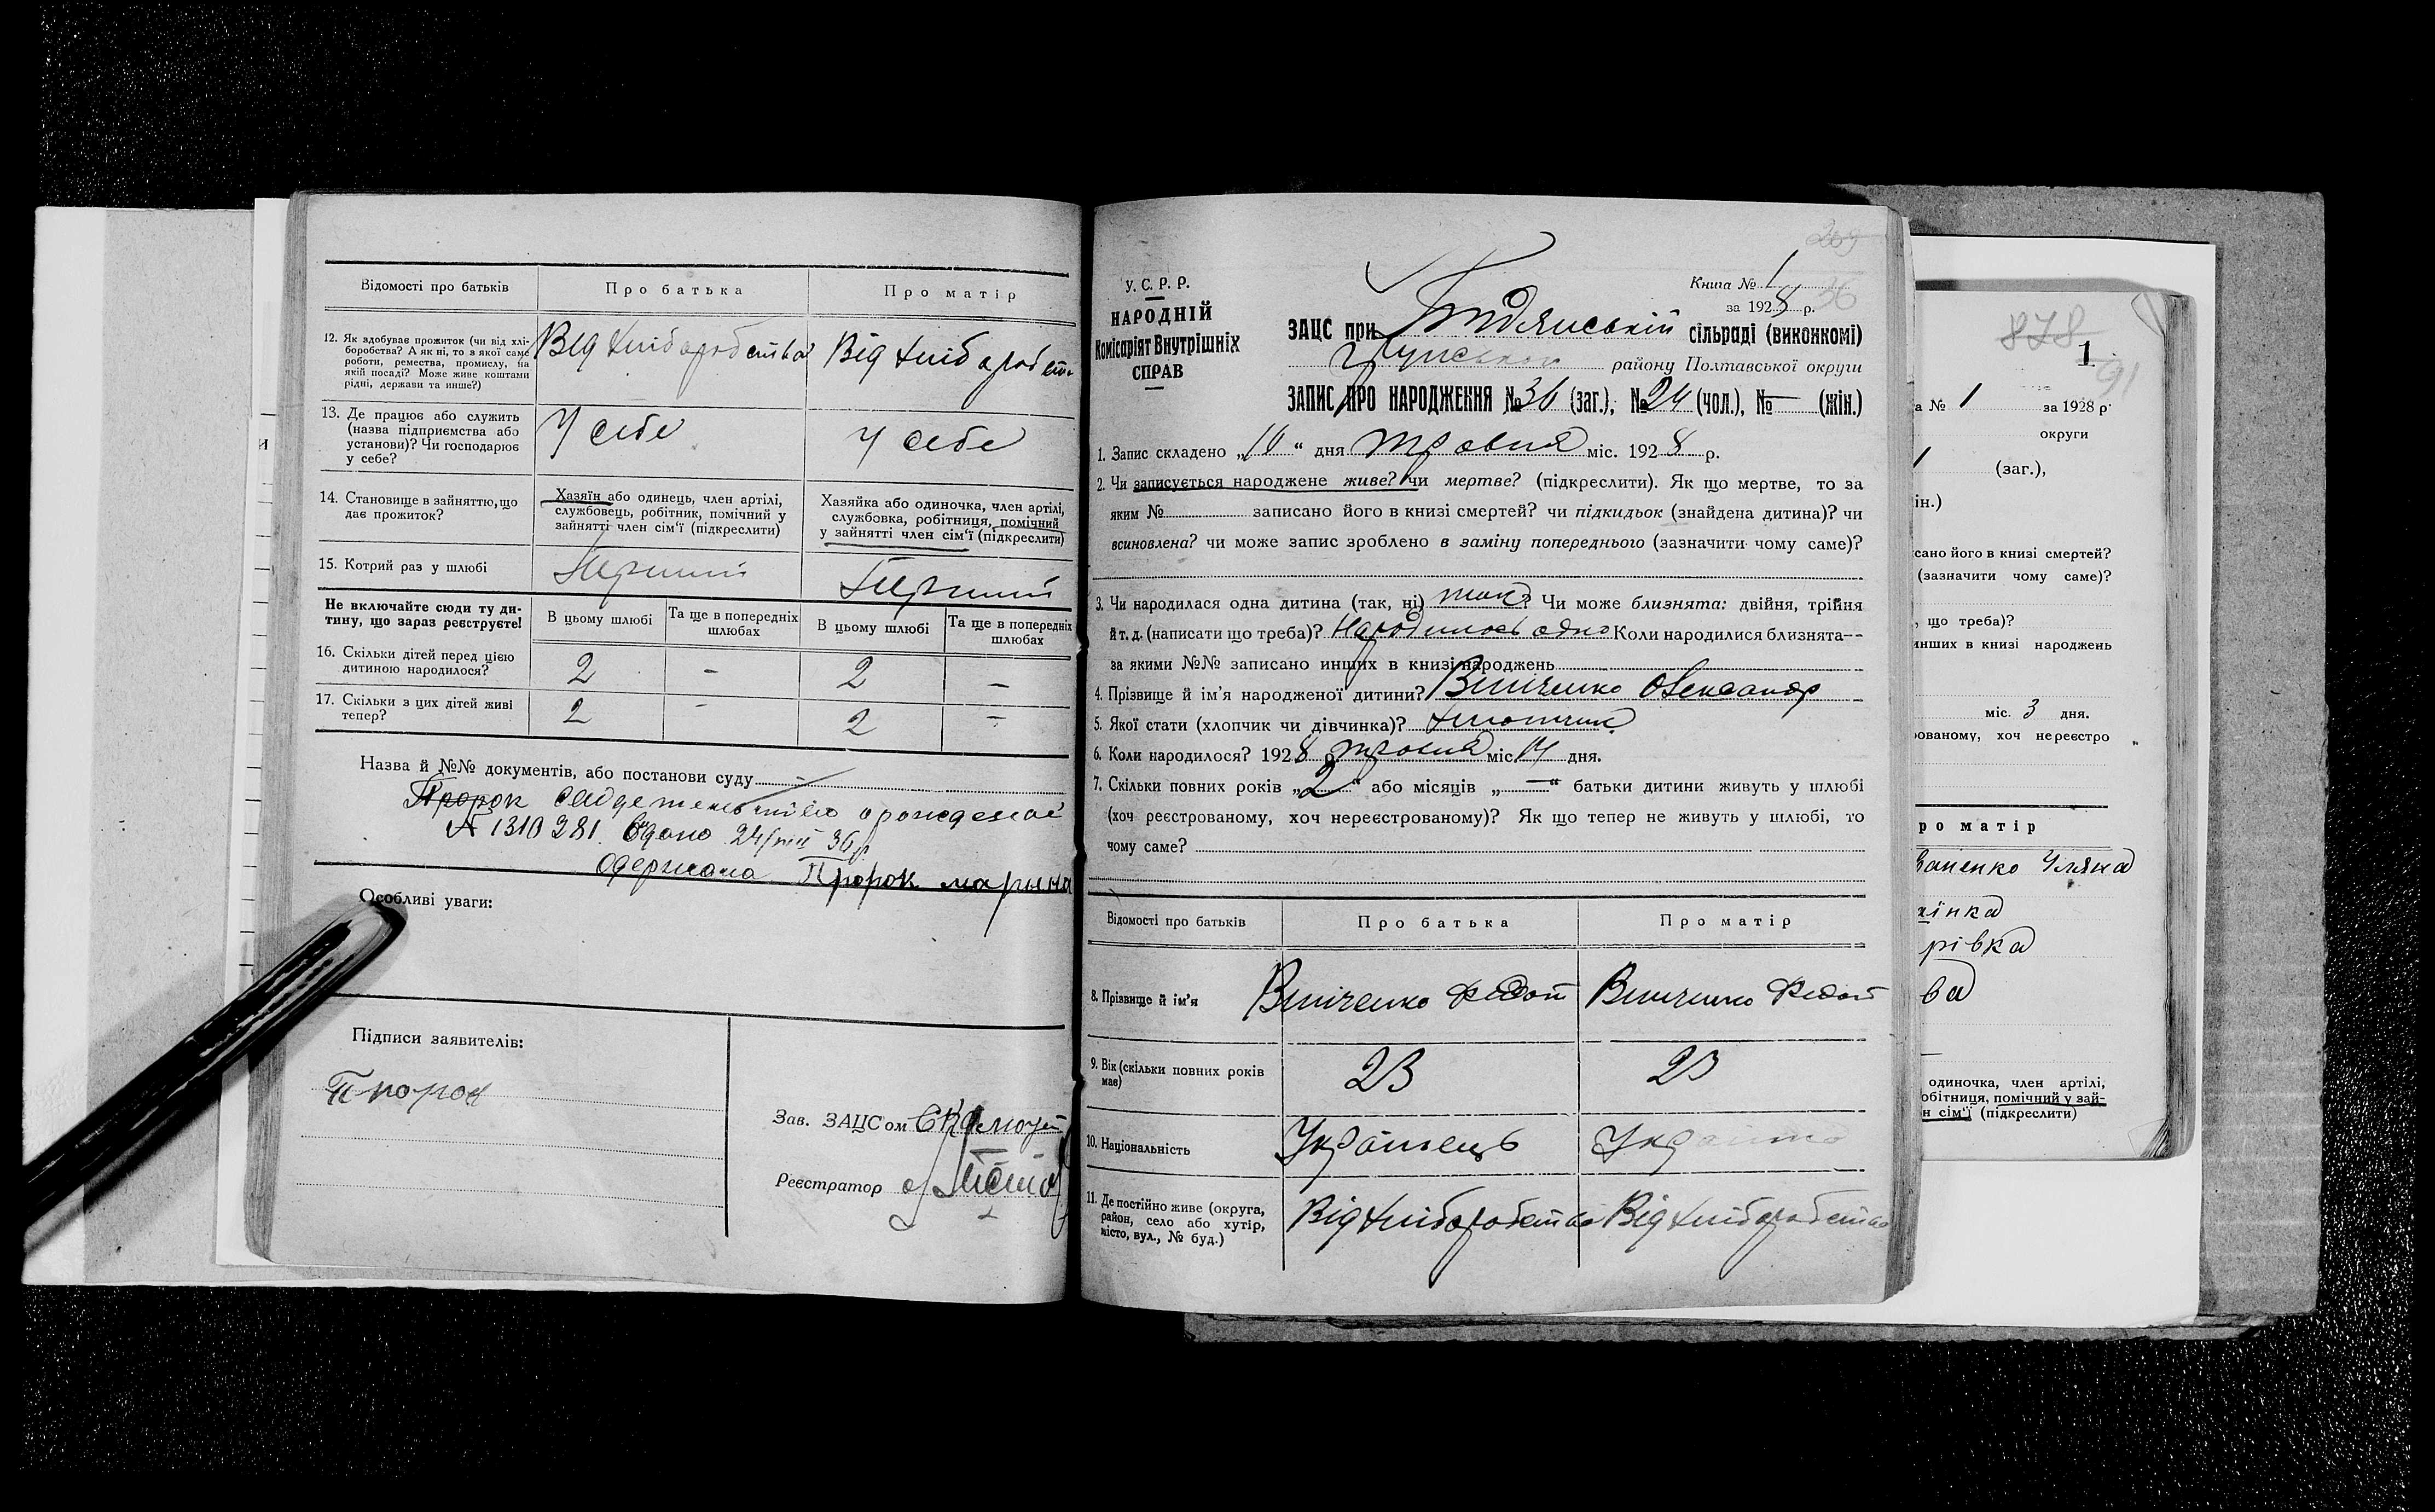 Відомості про батьків
Про батька
Про матір
12. Як здобуває прожиток (чи від хлі-
боробства? А як ні, то з якої саме
роботи, ремества, промислу, на
якій посаді? Може живе коштами
рідні, держави та инше?)
Від хліборобства
Від хліборобств
13. Де працює або служить
(назва підприємства або
установи)? Чи господарює
у себе?
У себе
у себе
14. Становище в зайняттю, що
дає прожиток?
Хазяїн або одинець, член артілі,
службовець, робітник, помічний у
зайнятті член сім'ї (підкреслити)
Хазяйка або одиночка, член артілі,
службовка, робітниця, помічний
у зайнятті член сім'ї (підкреслити)
15. Котрий раз у шлюбі
Перший
Перший
Не включайте сюди ту ди-
тину, що зараз реєструєте!
В цьому шлюбі
Та ще в попередніх
шлюбах
В цьому шлюбі
Та ще в попередніх
шлюбах
16. Скільки дітей перед цією
дитиною народилося?
2 - 2 -
17. Скільки з цих дітей живі
тепер?
2 - 2 -
Назва й №№ документів, або постанови суду
Пророк свидетельство о рождении
№ 1310281 Вдано 24/VIII 36 р
Одержала Пророк Марина
Особливі уваги:
Підписи заявителів:
Пророк
Зав. ЗАЦСом
Реєстратор
У. С. Р. Р.
НАРОДНІЙ
Комісаріят Внутрішніх
СПРАВ
269
Книга № 1
36
за 1928 р.
ЗАЦС при сільраді (виконкомі)
району Полтавської округи
ЗАПИС ПРО НАРОДЖЕННЯ № 36 (заг.), № 24 (чол.), № — (жін.)
1. Запис складено „ “ дня травня міс. 1928 р.
2. Чи записується народжене живе? чи мертве? (підкреслити). Як що мертве, то за
яким № записано його в книзі смертей? чи підкидьок (знайдена дитина)? чи
всиновлена? чи може запис зроблено в заміну попереднього (зазначити чому саме)?
3. Чи народилася одна дитина (так, ні) так? Чи може близнята: двійня, трійня
й т. д. (написати що треба)? Народилось одно Коли народилися близнята—
за якими №№ записано инших в книзі народжень
4. Прізвище й ім'я народженої дитини? Вініченко Олександр
5. Якої стати (хлопчик чи дівчинка)? хлопчик
6. Коли народилося? 1928 р. травня міс дня.
7. Скільки повних років „2“ або місяців „—“ батьки дитини живуть у шлюбі
(хоч реєстрованому, хоч нереєстрованому)? Як що тепер не живуть у шлюбі, то
чому саме?
Відомості про батьків
Про батька
Про матір
8. Прізвище й ім'я
Вініченко Федот
Вініченко Федот
9. Вік (скільки повних років
має)
23
23
10. Національність
Українець
11. Де постійно живе (округа,
район, село або хутір,
місто, вул., № буд.)
Від хліборобства
Від хліборобства
878
1
91
а № 1 за 1928 р.
округи
(заг.),
ін.)
сано його в книзі смертей?
(зазначити чому саме)?
, що треба)?
инших в книзі народжень
міс. 3 дня.
рованому, хоч нереєстро
ро матір
ваненко Уляна
їнка
рівка
ва
одиночка, член артілі,
обітниця, помічний у зай-
н сім'ї (підкреслити)